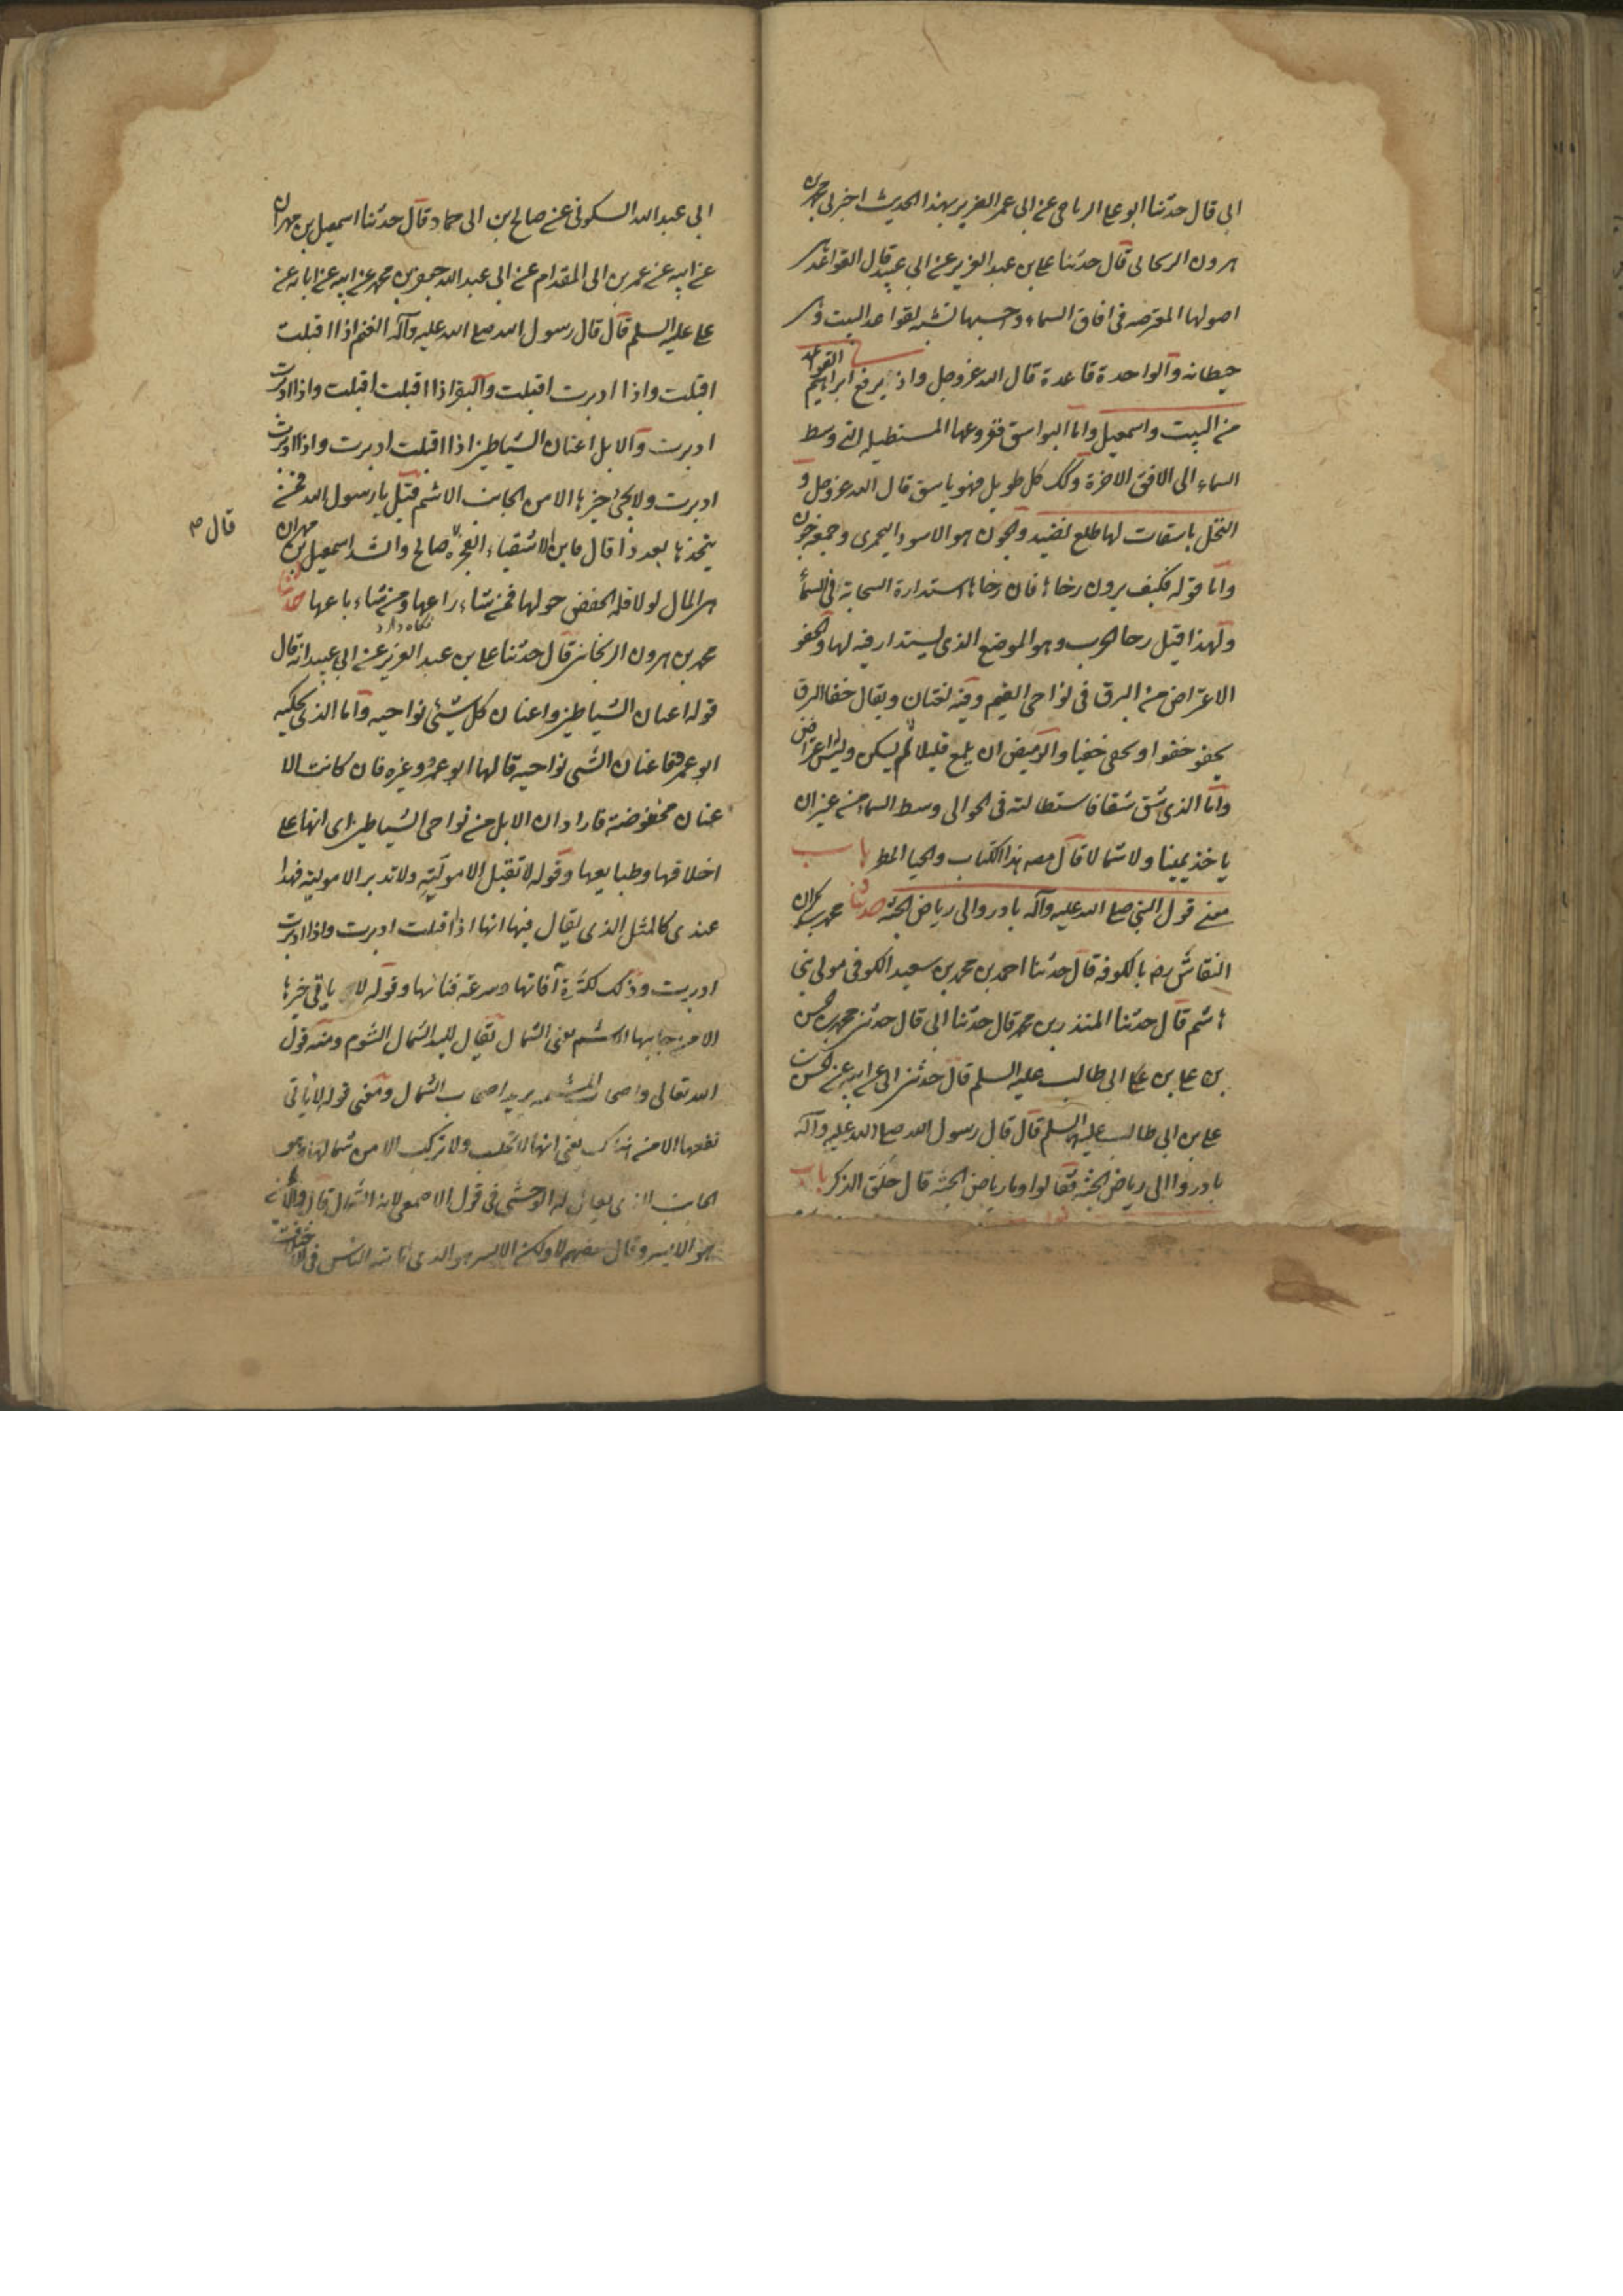 ابى قال حدثنا ابو على الرياحى عن ابى عمر الضرير بهذا الحديث اخبرنى محمد بن
هرون الزنجانى قال حدثنا على بن عبد العزيز عن ابى عبيد قال القواعد هى
اصولها المعترضه فى افاق السماء واحسبها تشبه بقواعد البيت وهى
حيطانه والواحدة قاعدة قال الله عز وجل واذ يرفع ابراهيم القواعد
من البيت واسمعيل واما البواسق ففروعها المستطيله التى وسط
السماء الى الافق الاخرة وكك كل طويل فهو باسق قال الله عز وجل و
النخل باسقات لها طلع نضيد والجون هو الاسود اليحمومى وجمعه جون
واما قوله فكيف ترون رحاها فان رحاها استدارة السحابة فى السماء
ولهذا قيل رحا الحرب وهو الموضع الذى يستدار فيه لها والخفو
الاعتراض من البرق فى نواحى الغيم وفيه لغتان ويقال خفا البرق
يخفو خفوا ويخفى خفيا والوميض ان يلمع قليلا ثم يسكن وليس له اعتراض
واما الذى شق شقا فاستطالته فى الجو الى وسط السماء من غير ان
ياخذ يمينا ولا شمالا قال مصه هذا الكتاب والحيا المطر باب
معنى قول النبى صلى الله عليه وآله بادروا الى رياض الجنة حدثنا محمد بن بكران
النقاش رض بالكوفه قال حدثنا احمد بن محمد بن سعيد الكوفى مولى بنى
هاشم قال حدثنا المنذر بن محمد قال حدثنا ابى قال حدثنى محمد بن الحسن
بن على بن على ابى طالب عليه السلم قال حدثنى ابى عن ابيه عن الحسن بن
على بن ابى طالب عليهم السلم قال قال رسول الله صلى الله عليه وآله
بادروا الى رياض الجنة فقالوا وما رياض الجنة قال حلق الذكر باب
ابى عبد الله السكونى عن صالح بن ابى حماد قال حدثنا اسمعيل بن مهران
عن ابيه عن عمر بن ابى المقدام عن ابى عبد الله جعفر بن محمد عن ابيه عن ابائه عن
على عليه السلم قال قال رسول الله صلى الله عليه وآله الغنم اذا اقبلت
اقبلت واذا ادبرت اقبلت والبقر اذا اقبلت اقبلت واذا ادبرت
ادبرت والابل اعنان الشياطين اذا اقبلت ادبرت واذا ادبرت
ادبرت ولا يجئ خيرها الا من الجانب الاشم قيل يا رسول الله فمن
يتخذها بعد ذا قال فاين الاشقياء الفجرة قال صالح وانشد اسمعيل بن مهران
قال م
هى المال لولا قلة الخفض حولها فمن شاء راعها ومن شاء باعها حدثنا
محمد بن هرون الزنجانى قال حدثنا على بن عبد العزيز عن ابى عبيد انه قال
قوله اعنان الشياطين واعنان كل شيئ نواحيه واما الذى يحكيه
ابو عمر فاعنان الشى نواحيه قالها ابو عمرو وغيره فان كانت الا
عنان محفوضة فاراد ان الابل من نواحى الشياطين اى انها على
اخلاقها وطبايعها وقوله لا تقبل الا موليته ولا تدبر الا موليه فهذا
عندى كالمثل الذى يقال فيها انها اذا اقبلت ادبرت واذا ادبرت
ادبرت وذلك لكثرة آفاتها وسرعة فنائها وقوله لا ياتى خيرها
الا من جانبها الاشم يعنى الشمال يقال لليد الشمال الشوم ومنه قول
الله تعالى واصحاب المشئمه يريد اصحاب الشمال ومعنى قوله لا يأتى
نفعها الا من هناك يعنى انها لا تحلب ولا تركب الا من شمالها وهو
الجانب الذى يقال له الوحشى فى قول الاصمعى لانه الشمال قال والانسى
هو الايسر وقال بعضهم لا ولكن الايسر هو الذى تاتيه الناس فى الا